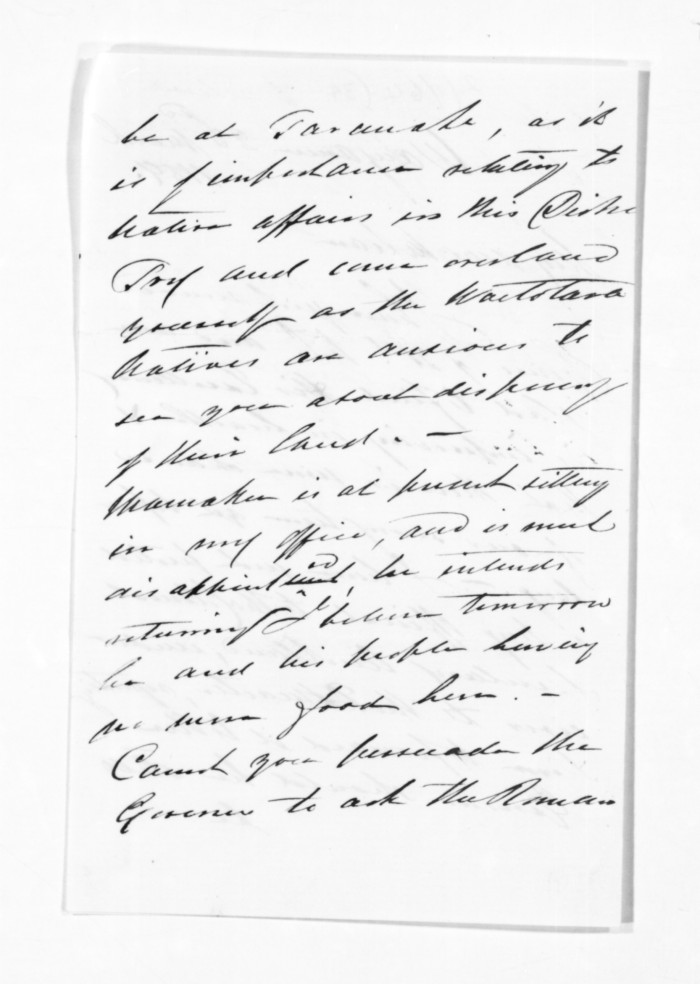 be at Taranake, as it
is of importance relating to
Native affairs in this Distre
Try and come overland
yourself as the Waitotara
Natives are anxious to
see you about disposing
of their land. —
Mamaku is at present sitting
in my office, and is much
disappointed, he intends
returning I believe tomorrow
he and his people having
no more food here. –
Cannot you persuade the
Governor to ask the Roman